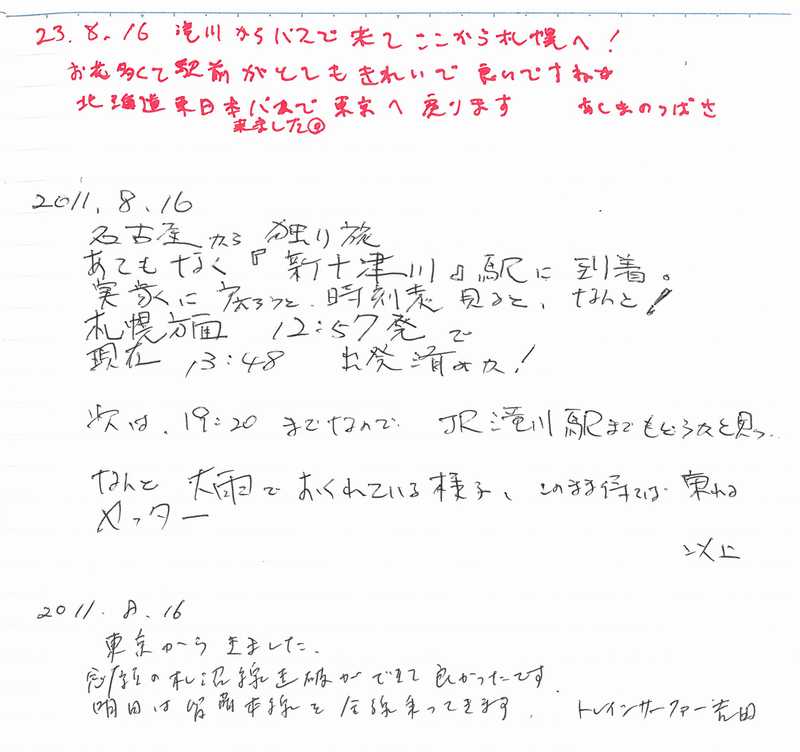 23.8.16 滝川からバスで来てここから札幌へ!
お花多くて駅前がとてもきれいで良いですね☆
北海道東日本パスで東京へ戻ります あしまのつばさ
来ました
2011.8.16
名古屋から独り旅
あてもなく『新十津川』駅に到着。
実家に戻ろうと、時刻表見ると、なんと!
札幌方面 12:57発で
現在 13:48 出発済みか!
次は、19:20 までなので JR滝川駅までもどろうかと思っ
なんと 大雨で おくれている様子、このまま待てば 乗れる
ヤッター
以上
2011.8.16
東京から きました.
念願の札沼線走破ができて 良かったです.
明日は留萌本線を全線乗ってきます. トレインサーファー吉田